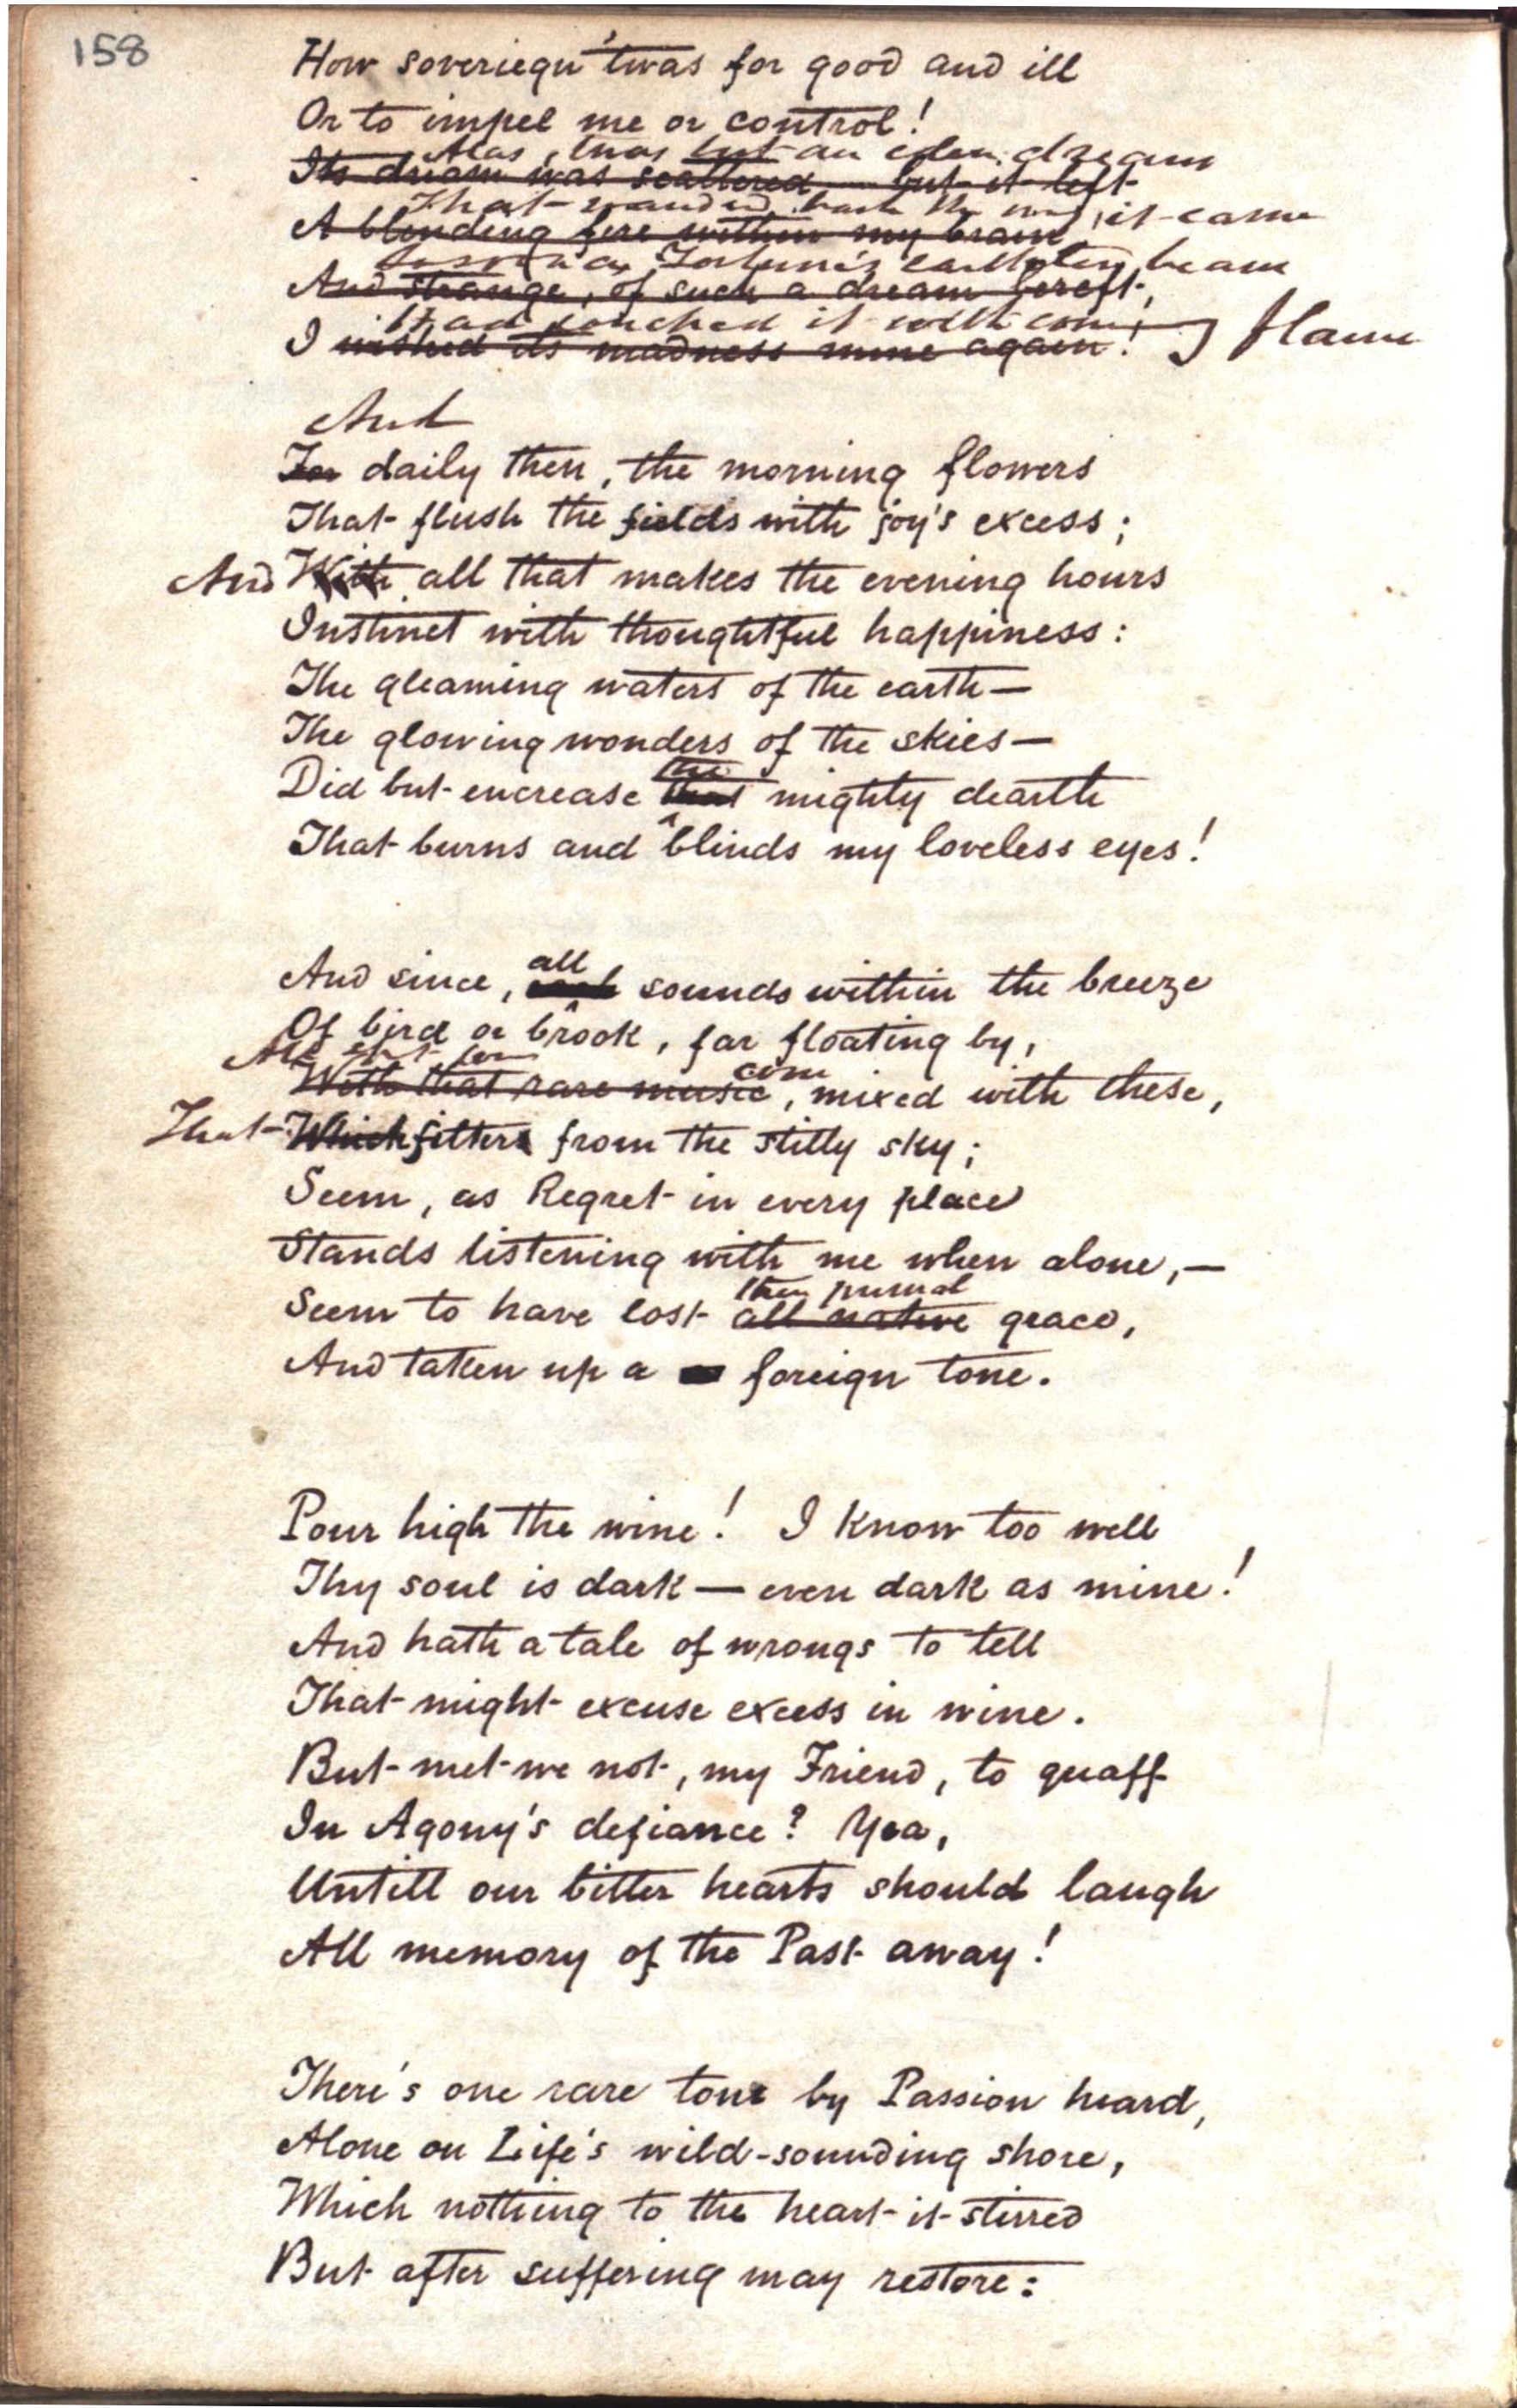 158
How soveriegn 'twas for good and ill
Or to impel me or control!
Alas, 'twas but an eden dream
Its dream was scattered but it left
That wander'd back the way it came
A blinding fire within my brain
beam
And strange, of such a dream bereft,
Had touched it with flame
I wished its madness mine again!
And
For daily then, the morning flowers
That flush the fields with joy's excess;
And With all that makes the evening hours
Instinct with thoughtful happiness:
The gleaming waters of the earth—
The glowing wonders of the skies—
the
Did but encrease that mighty dearth
That burns and blinds my loveless eyes!
all
And since, sounds within the breeze
Of bird or brook, far floating by,
All
With that rare music, mixed with these,
That Which filters from the stilly sky;
Seem, as Regret in every place
Stands listening with me when alone,—
their primal
Seem to have lost all native grace,
And taken up a foreign tone.
Pour high the wine! I know too well
Thy soul is dark — even dark as mine!
And hath a tale of wrongs to tell
That might excuse excess in wine.
But met we not, my Friend, to quaff
In Agony's defiance? Yea,
Untill our bitter hearts should laugh
All memory of the Past away!
There's one rare tone by Passion heard,
Alone on Life's wild-sounding shore,
Which nothing to the heart it stirred
But after suffering may restore: